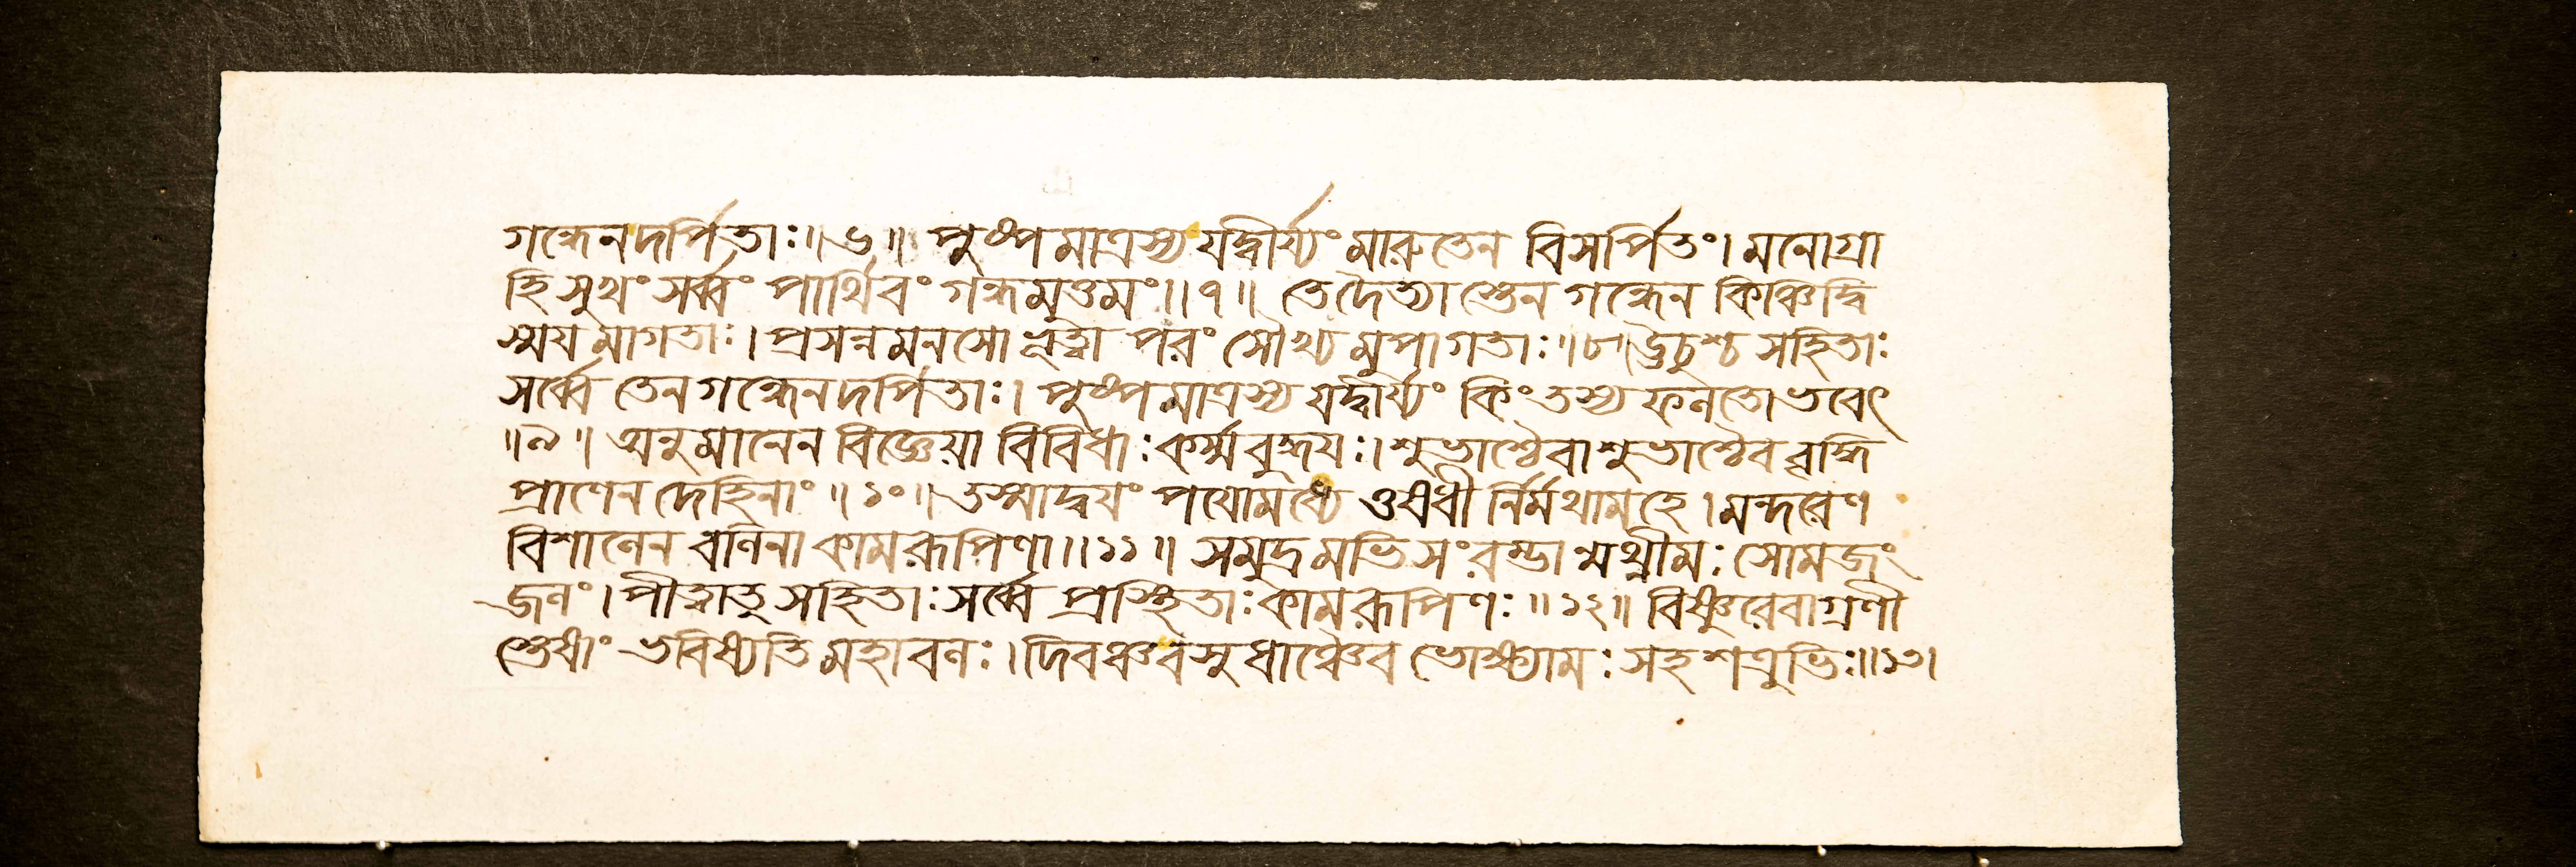 গন্ধেনদর্পিতাঃ॥৬॥ পুষ্পমাত্রস্য যদ্বীর্য্যং মারুতেন বিসর্পিতং। মনোগ্রা
হি সুখং সর্ব্বং পার্থিবং গন্ধমুত্তমং॥৭॥ তেদৈত্যাস্তেন গন্ধেন কিঞ্চিদ্বি
স্ময মাগতাঃ। প্রসন্নমনসো ভূত্বা পরং সৌখ্য মুপাগতাঃ॥৮॥ উচুশ্চ সহিতাঃ
সর্ব্বে তেন গন্ধেনদর্পিতাঃ। পুষ্পমাত্রস্য যদ্বীর্য্যং কিং তস্য ফলতো ভবেৎ
॥৯॥ অনুমানেন বিজ্ঞেয়া বিবিধাঃ কর্ম্মবুদ্ধযঃ। শুভাশ্চৈবাশুভাশ্চৈব বুদ্ধি
প্রাণেন দেহিনাং॥১০॥ তস্মাদ্বযং পযোমধ্যে ওষধী র্নির্মথামহে। মন্দরেণ
বিশালেন বলিনা কামরূপিণা॥১১॥ সমুদ্রমভিসংরব্ধা ন্মথ্নীমঃ সোমজং
জলং। পীত্বাতু সহিতাঃ সর্ব্বে প্রস্থিতাঃ কামরূপিণঃ॥১২॥ বিষ্ণুরেবাগ্রণী
স্তেষাং ভবিষ্যতি মহাবলঃ। দিবঞ্চবসুধাঞ্চৈব ভোক্ষ্যামঃ সহশত্রুভিঃ॥১৩।